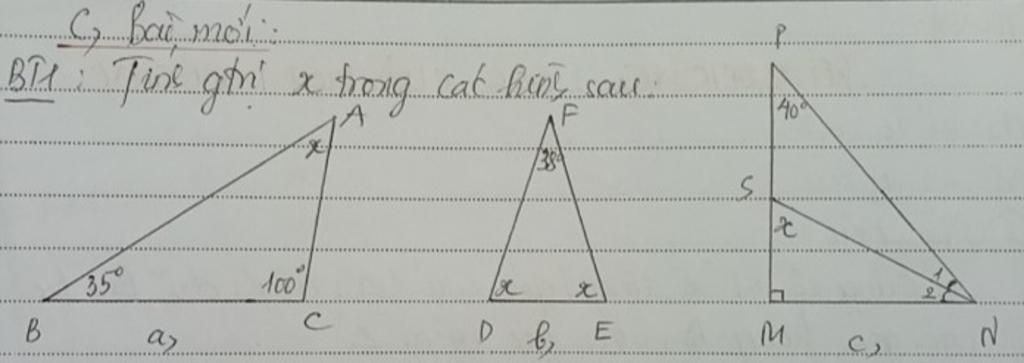 C, Bài mới:
BT1: Tính gtrị x trong các hình sau:
P
A
F
x
38°
40°
S
x
35°
100°
x
x
1
2
B
a,
C
D
b,
E
M
c,
N